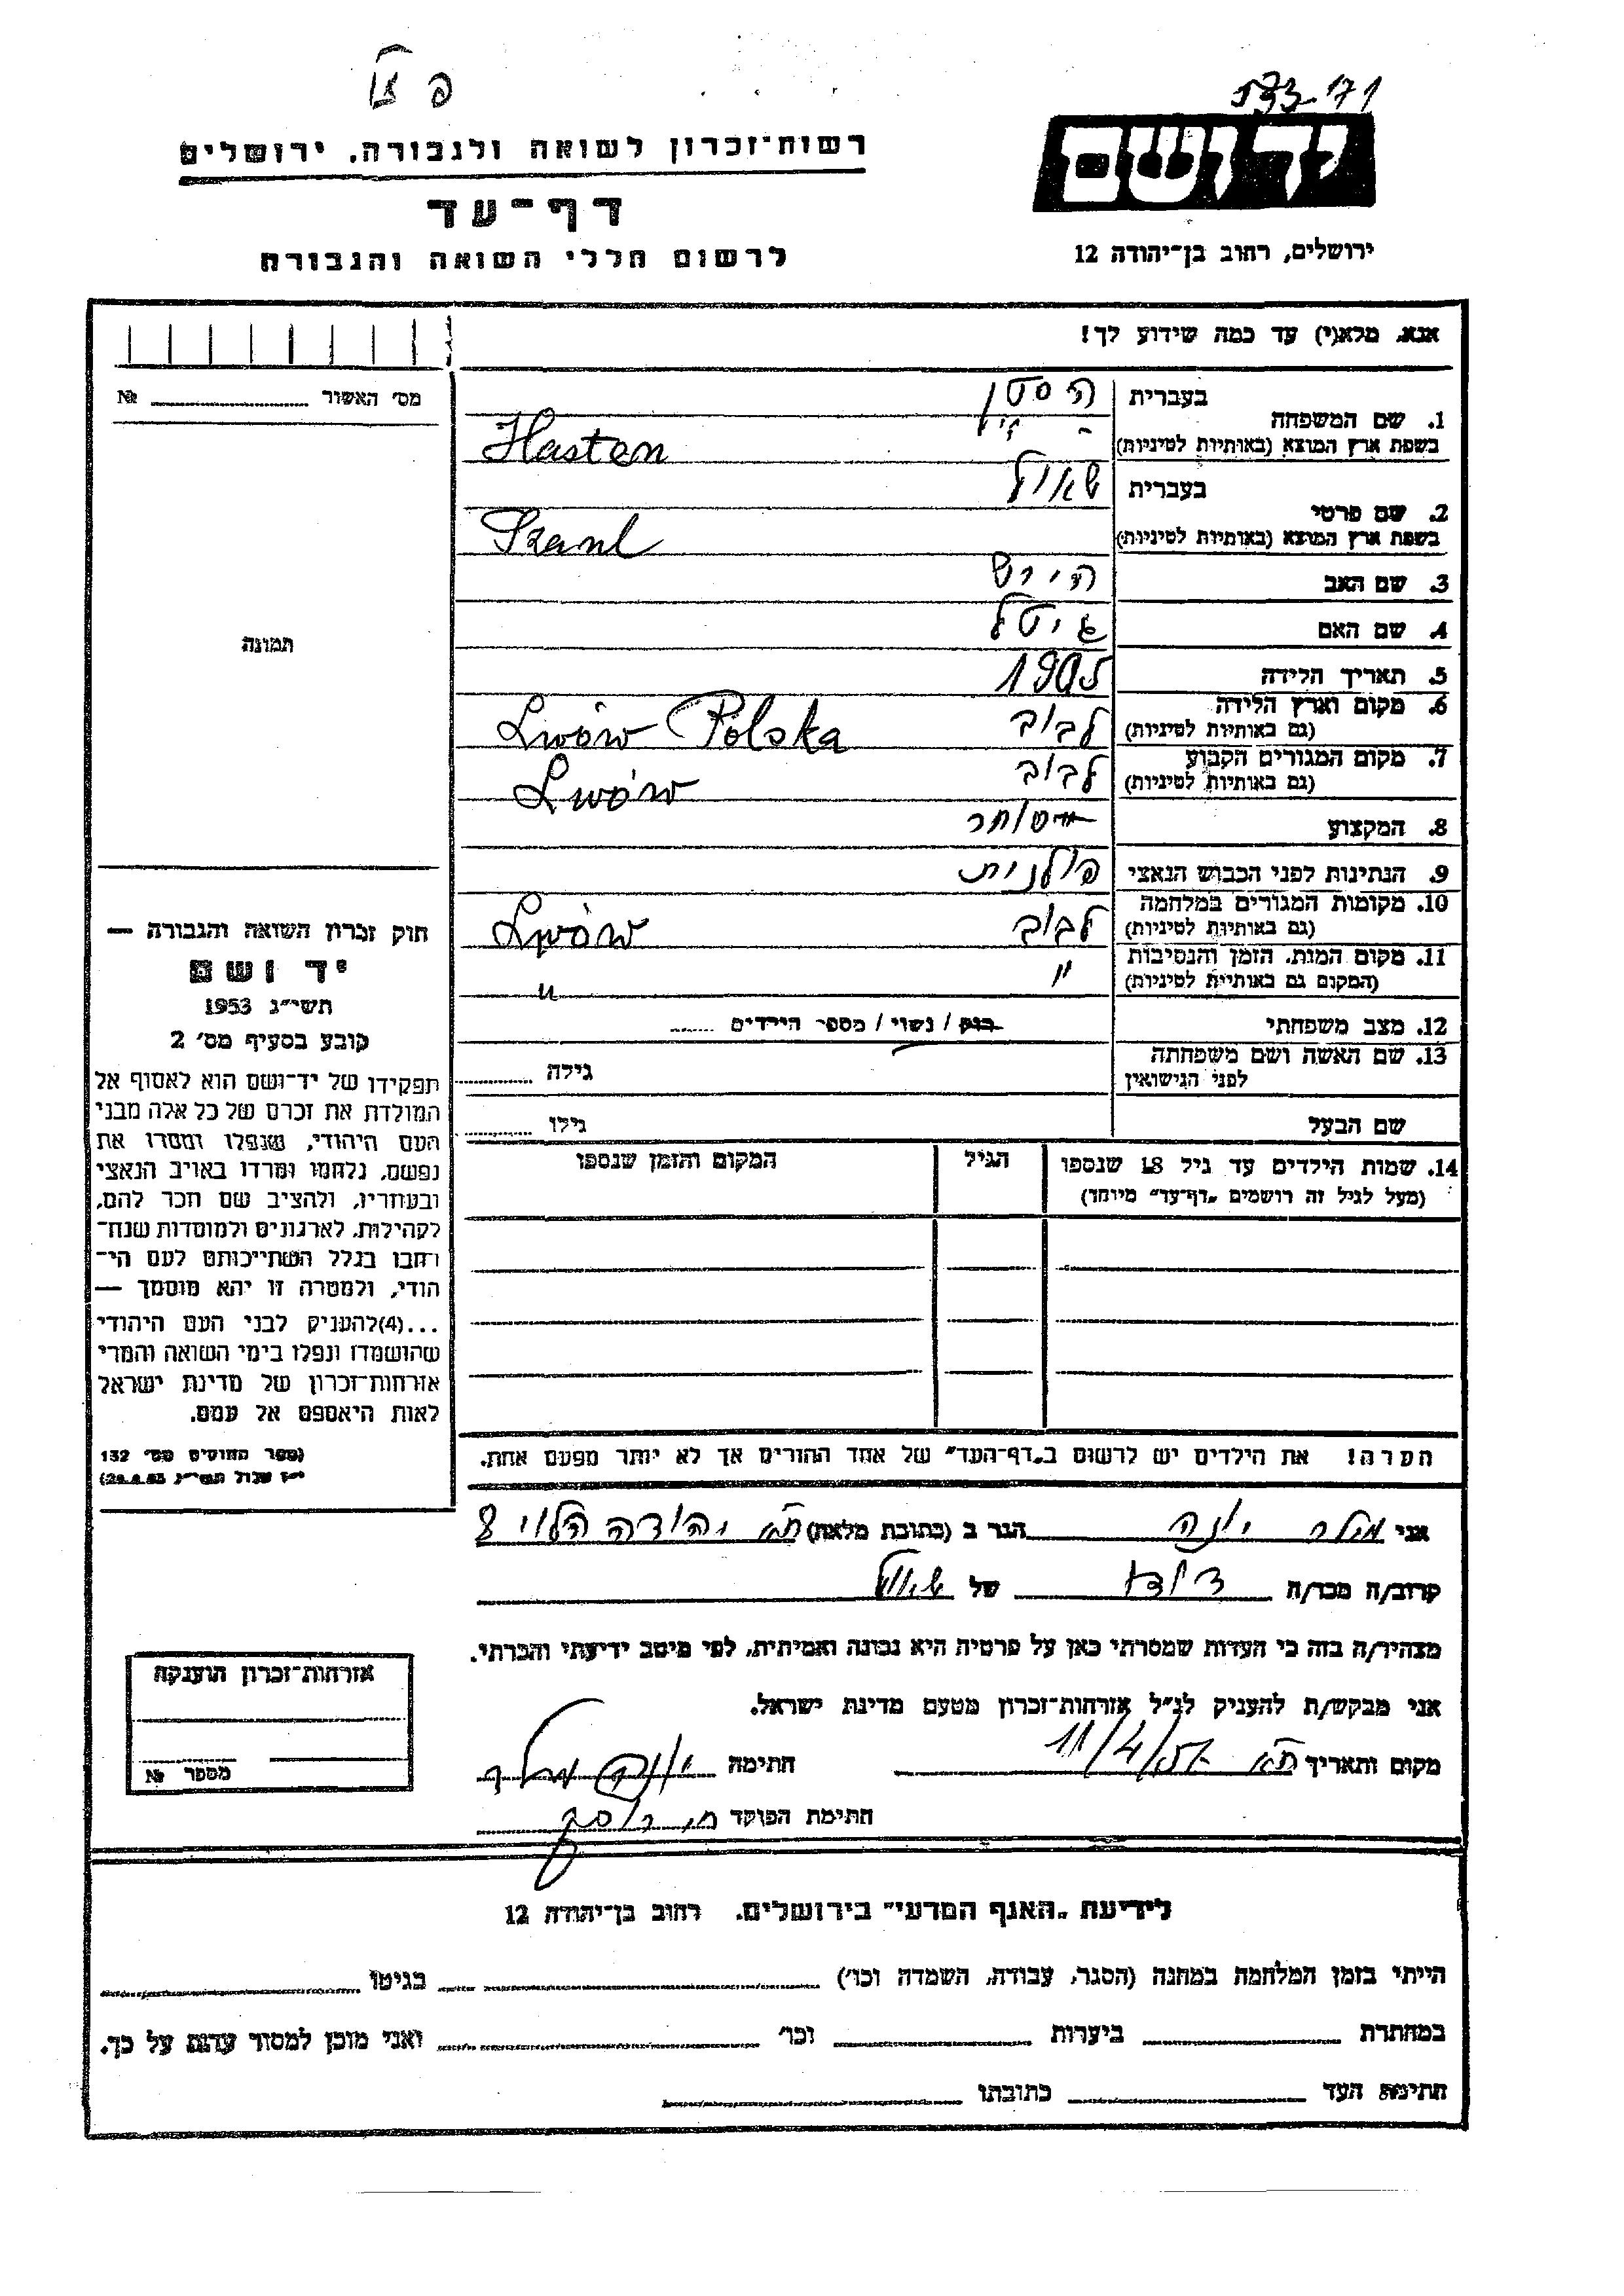 533-171
יד ושם
ירושלים, רחוב בן־יהודה 12
רשות־זכרון לשואה ולגבורה, ירושלים
דף־עד
לרשום חללי השואה והגבורה
אנא, מלא(י) עד כמה שידוע לך!
מס׳ האשור № 
1. שם המשפחה
בעברית הסטן
בשפת ארץ המוצא (באותיות לטיניות) Hasten
2. שם פרטי
בעברית שאול
בשפת ארץ המוצא (באותיות לטיניות) Szaul
3. שם האב הירש
4. שם האם גיטל
5. תאריך הלידה 1905
6. מקום וארץ הלידה לבוב Lwów Polska
(גם באותיות לטיניות)
7. מקום המגורים הקבוע לבוב Lwów
(גם באותיות לטיניות)
8. המקצוע סוחר
9. הנתינות לפני הכבוש הנאצי פולנית
10. מקומות המגורים במלחמה לבוב Lwów
(גם באותיות לטיניות)
11. מקום המות, הזמן והנסיבות " "
(המקום גם באותיות לטיניות)
12. מצב משפחתי רווק / נשוי / מספר הילדים
13. שם האשה ושם משפחתה גילה
לפני הנישואין
שם הבעל גילו
14. שמות הילדים עד גיל 18 שנספו הגיל המקום והזמן שנספו
(מעל לגיל זה רושמים „דף־עד" מיוחד)
הערה! את הילדים יש לרשום ב„דף־העד" של אחד ההורים אך לא יותר מפעם אחת.
תמונה
חוק זכרון השואה והגבורה —
יד ושם
תשי״ג 1953
קובע בסעיף מס׳ 2
תפקידו של יד־ושם הוא לאסוף אל
המולדת את זכרם של כל אלה מבני
העם היהודי, שנפלו ומסרו את
נפשם, נלחמו ומרדו באויב הנאצי
ובעוזריו, ולהציב שם וזכר להם,
לקהילות, לארגונים ולמוסדות שנח־
רחבו בגלל השתייכותם לעם הי־
הודי, ולמטרה זו יהא מוסמך —
...(4)להעניק לבני העם היהודי
שהושמדו ונפלו בימי השואה והמרי
אזרחות־זכרון של מדינת ישראל
לאות היאספם אל עמם.
(ספר החוקים מס׳ 132
י״ז אלול תשי״ג, 28.8.53)
אני מילר יונה הגר ב (כתובת מלאה) ת״א יהודה הלוי 8
קרוב/ה מכר/ה דודו של שאול
מצהיר/ה בזה כי העדות שמסרתי כאן על פרטיה היא נכונה ואמיתית, לפי מיטב ידיעתי והכרתי.
אני מבקש/ת להעניק לנ״ל אזרחות־זכרון מטעם מדינת ישראל.
מקום ותאריך ת״א 11/4/57 חתימה יונה מילר
חתימת הפוקד
אזרחות־זכרון הוענקה
מספר №
לידיעת „האגף המדעי" בירושלים, רחוב בן־יהודה 12
הייתי בזמן המלחמה במחנה (הסגר, עבודה, השמדה וכו׳) בגיטו
במחתרת ביערות וכו׳ ואני מוכן למסור עדות על כך.
חתימת העד כתובתו